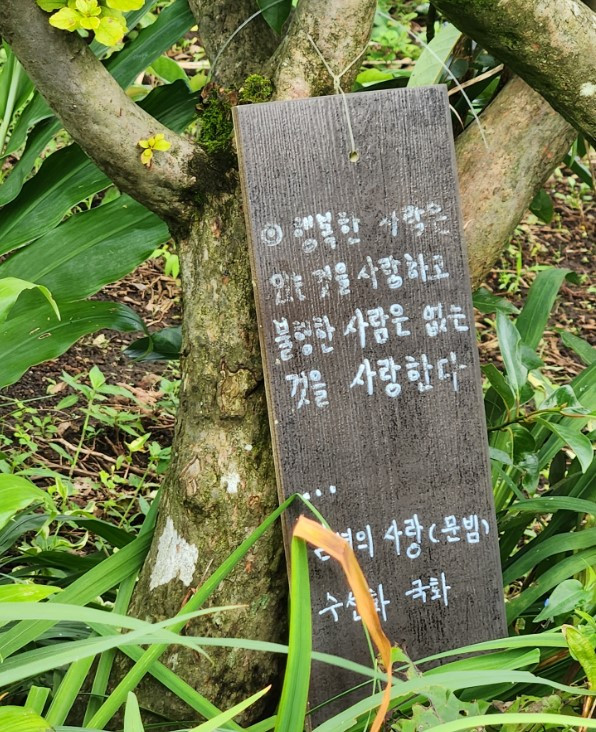 ◎ 행복한 사람은
있는 것을 사랑하고
불행한 사람은 없는
것을 사랑한다
...
사랑(문빔)
수선화 국화